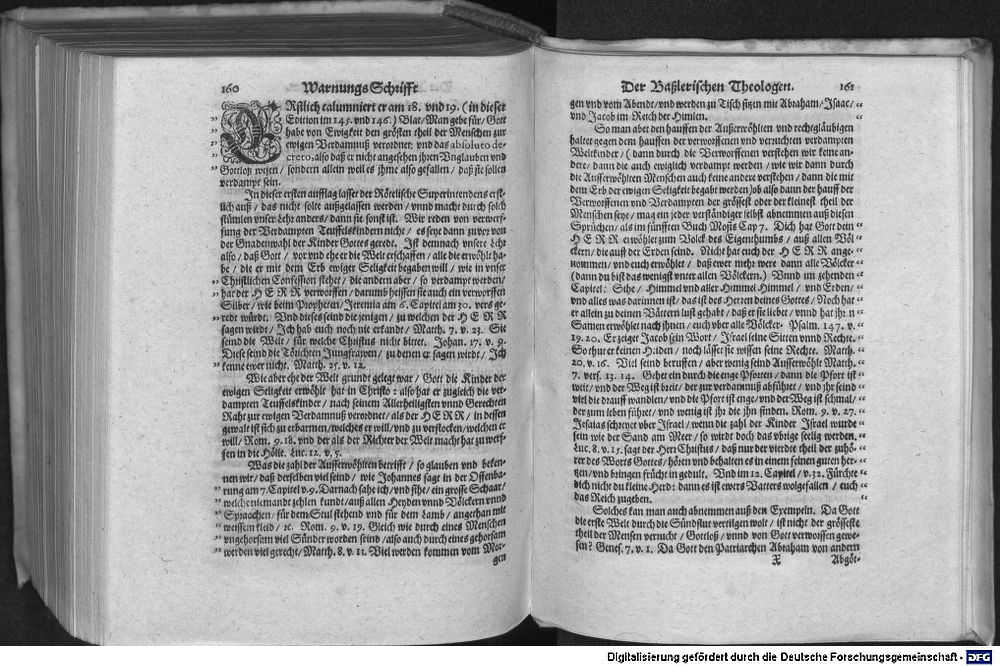 160 Warnungs Schrifft
ERstlich calumniert er am 18. vnd 19. (in dieser
Edition im 145. vnd 146.) Blat/ Man gebe für/ Gott
habe von Ewigkeit den grösten theil der Menschen zur
ewigen Verdamnuß verordnet: vnd das absoluto de-
creto, also daß er nicht angesehen jhren Vnglauben vnd
Gottloß wesen/ sondern allein weil es jhme also gefallen/ daß sie sollen
verdampt sein.
In dieser ersten aufflag lasset der Rötelische Superintendens erst-
lich auß/ das nicht solte außgelassen werden/ vnnd macht durch solch
stümlen vnser Lehr anders/ dann sie sonst ist. Wir reden von verwerf-
fung der Verdampten Teuffelskindern nicht/ es seye dann zuvor von
der Gnadenwahl der Kinder Gottes geredt. Ist demnach vnsere Lehr
also/ daß Gott/ vor vnd ehe er die Welt erschaffen/ alle die erwöhlt ha-
be/ die er mit dem Erb ewiger Seligkeit begaben will/ wie in vnser
Christlichen Confession stehet/ die andern aber/ so verdampt werden/
hat der HERR verworffen/ darumb heissen sie auch ein verworffen
Silber/ wie beim Propheten/ Jeremia am 6. Capitel am 30. vers ge-
redt würdt. Vnd dieses seind die jenigen/ zu welchen der HERR
sagen wirdt/ Ich hab euch noch nie erkandt/ Matth. 7. v. 23. Sie
seind die Welt/ für welche Christus nicht bittet. Johan. 17. v. 9.
Diese seind die Törichten Jungfrawen/ zu denen er sagen wirdt/ Ich
kenne ewer nicht. Matth. 25. v. 12.
Wie aber ehe der Welt grund gelegt war/ Gott die Kinder der
ewigen Seligkeit erwöhlt hat in Christo: also hat er zugleich die ver-
dampten Teuffelskinder/ nach seinem Allerheiligsten vnnd Gerechten
Raht zur ewigen Verdamnuß verordnet/ als der HERR/ in dessen
gewalt ist sich zu erbarmen/ welches er will/ vnd zu verstocken/ welchen er
will/ Rom. 9. 18. vnd der als der Richter der Welt macht hat zu werf-
fen in die Hölle. Luc. 12. v. 5.
Was die zahl der Ausserwöhlten betrifft/ so glauben vnd beken-
nen wir/ daß derselben viel seind/ wie Johannes sagt in der Offenba-
rung am 7. Capitel v. 9. Darnach sahe ich/ vnd sihe/ ein grosse Schaar/
welche niemandt zehlen kundt/ auß allen Heyden vnnd Völckern vnnd
Spraachen/ für dem Stul stehend vnd für dem Lamb/ angethan mit
weissem kleid/ ꝛc. Rom. 9. v. 19. Gleich wie durch eines Menschen
vngehorsam viel Sünder worden seind/ also auch durch eines gehorsam
werden viel gerecht/ Matth. 8. v. 11. Viel werden kommen vom Mor-
gen
Der Baßlerischen Theologen. 161
gen vnd vom Abendt/ vnd werden zu Tisch sitzen mit Abraham/ Isaac/
vnd Jacob im Reich der Himlen.
So man aber den hauffen der Außerwöhlten vnd rechtgläubigen
haltet gegen dem hauffen der verworffenen vnd veruchten verdampten
Weltkinder/ (dann durch die Verworffenen verstehen wir keine an-
dere/ dann die auch ewiglich verdampt werden/ wie wir dann durch
die Ausserwöhlten Menschen auch keine andere verstehen/ dann die mit
dem Erb der ewigen Seligkeit begabt werden) ob also dann der hauff der
Verworffenen vnd Verdampten der grössest oder der kleinest theil der
Menschen seye/ mag ein jeder verständiger selbst abnemmen auß diesen
Sprüchen/ als im fünfften Buch Mosis Cap 7. Dich hat Gott dein
HERR erwöhlet zum Volck des Eigenthumbs/ auß allen Völ-
ckern/ die auff der Erden seind. Nicht hat euch der HERR ange-
nommen/ vnd euch erwöhlet/ daß ewer mehr were dann alle Völcker
(dann du bist das wenigst vnter allen Völckern.) Vnnd im zehenden
Capitel: Sihe/ Himmel vnd aller Himmel Himmel/ vnd Erden/
vnd alles was darinnen ist/ das ist des Herren deines Gottes/ Noch hat
er allein zu deinen Vättern lust gehabt/ daß er sie liebet/ vnnd hat jhr n
Samen erwöhlet nach jhnen/ euch vber alle Völcker. Psalm. 147. v.
19. 20. Er zeige Jacob sein Wort/ Israel seine Sitten vnnd Rechte.
So thut er keinen Heiden/ noch lässet sie wissen seine Rechte. Matth.
20. v. 16. Viel seind beruffen/ aber wenig seind Ausserwöhlt Matth.
7. vers. 13. 14. Gehet ein durch die enge Pforten/ dann die Pfort ist
weit/ vnd der Weg ist breit/ der zur verdamnuß abführet/ vnd jhr seind
viel die drauff wandlen/ vnd die Pfort ist enge/ vnd der Weg ist schmal/
der zum leben führet/ vnd wenig ist jhr die jhn finden. Rom. 9. v. 27.
Jesaias schreyet vber Israel/ wenn die zahl der Kinder Israel wurde
sein wie der Sand am Meer/ so wirdt doch das vbrige seelig werden.
Luc. 8. v. 15. sagt der Herr Christus/ daß nur der vierdte theil der zuhö-
rer des Worts Gottes/ hören vnd behalten es in einem feinen guten her-
tzen/ vnd bringen frücht in gedult. Vnd im 12. Capitel/ v. 32. Fürchte
dich nicht du kleine Herd: dann es ist ewers Vatters wolgefallen/ euch
das Reich zugeben.
Solches kan man auch abnemmen auß den Exempeln. Da Gott
die erste Welt durch die Sündflut vertilgen wolt/ ist nicht der grösseste
theil der Mensen verrucht/ Gottloß/ vnnd von Gott verworffen gewe-
sen? Genes. 7. v. 1. Da Gott den Patriarchen Abraham von andern
X Abgöt-
Digitalisierung gefördert durch die Deutsche Forschungsgemeinschaft - DFG